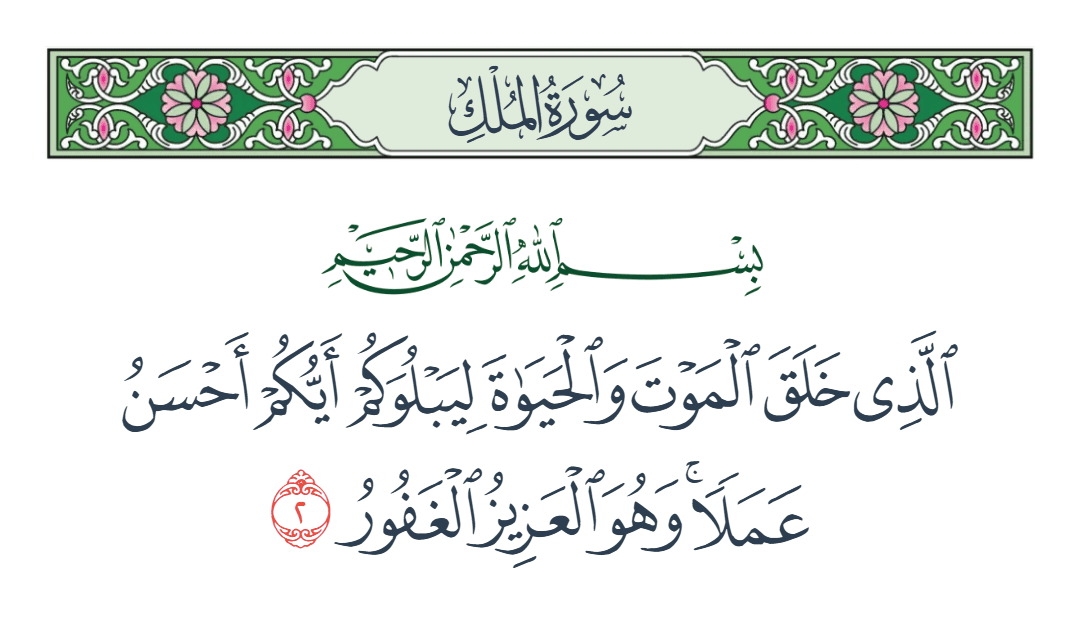 سُورَةُ الْمُلْكِ
بِسْمِ ٱللَّهِ ٱلرَّحْمَٰنِ ٱلرَّحِيمِ
ٱلَّذِى خَلَقَ ٱلْمَوْتَ وَٱلْحَيَوٰةَ لِيَبْلُوَكُمْ أَيُّكُمْ أَحْسَنُ
عَمَلًا ۚ وَهُوَ ٱلْعَزِيزُ ٱلْغَفُورُ ٢